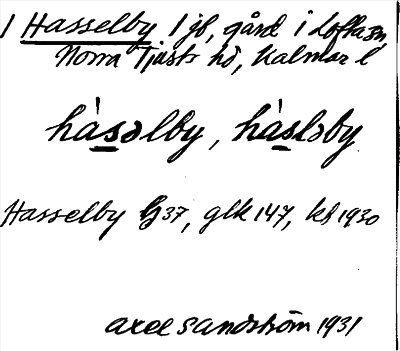 1 Hasselby 1 jb, gård i Lofta sn,
Norra Tjusts hd, Kalmar l
hàsəlby, hàsləby
Hasselby G37, glk 147, kb 1930
Axel Sandström 1931